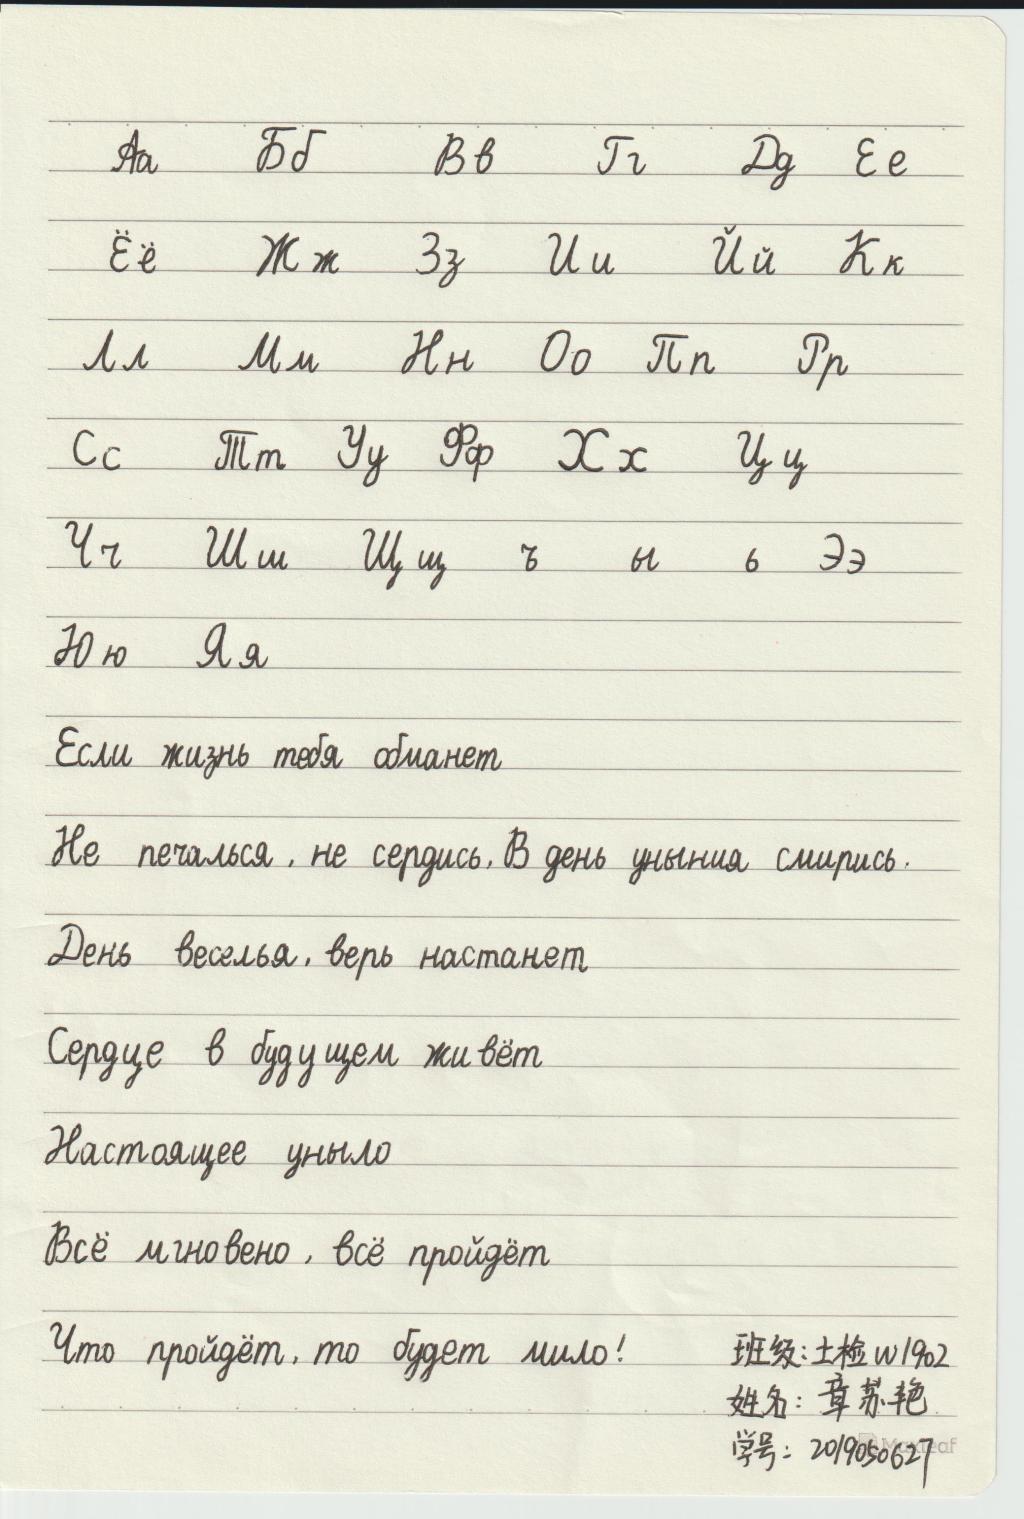 Аа Бб Вв Гг Дд Ее
Ёё Жж Зз Ии Йй Кк
Лл Мм Нн Оо Пп Рр
Сс Тт Уу Фф Хх Цц
Чч Шш Щщ ъ ы ь Ээ
Юю Яя
Если жизнь тебя обманет
Не печалься, не сердись, В день уныния смирись.
День веселья, верь настанет
Сердце в будущем живёт
Настоящее уныло
Всё мгновено, всё пройдёт
Что пройдёт, то будет мило!
班级:土检W1902
姓名:章苏艳
学号:2019050627